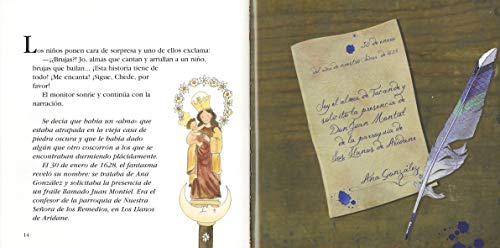 Los niños ponen cara de sorpresa y uno de ellos exclama:
—¿¡Brujas?! Jo, almas que cantan y arrullan a un niño,
brujas que bailan... ¡Esta historia tiene de
todo! ¡Me encanta! ¡Sigue, Chede, por
favor!
El monitor sonríe y continúa con la
narración.
Se decía que había un «alma» que
estaba atrapada en la vieja casa de
piedra oscura y que le había dado
algún que otro coscorrón a los que se
encontraban durmiendo plácidamente.
El 30 de enero de 1628, el fantasma
reveló su nombre: se trataba de Ana
González y solicitaba la presencia de
un fraile llamado Juan Montiel. Era el
confesor de la parroquia de Nuestra
Señora de los Remedios, en Los Llanos
de Aridane.
14
30 de enero
del año de nuestro Señor de 1628
Soy el alma de Tacande y
solicito la presencia de
Don Juan Montiel
de la parroquia de
los Llanos de Aridane
Ana González